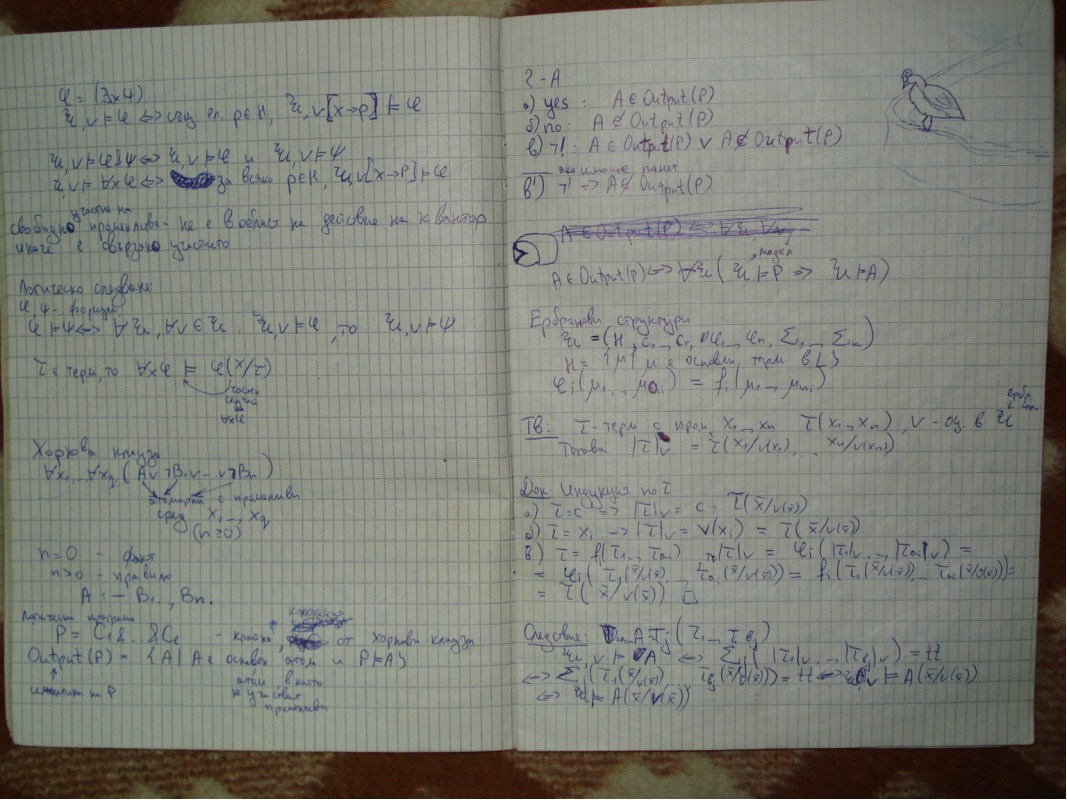 φ = (∃xψ)
𝔄, v ⊨ φ ⟺ същ. ел. p∈H, 𝔄, v[x→p] ⊨ φ
𝔄, v ⊨ φ&ψ ⟺ 𝔄, v ⊨ φ и 𝔄, v ⊨ ψ
𝔄, v ⊨ ∀xφ ⟺ за всяко p∈H, 𝔄, v[x→p] ⊨ φ
участие на
свободно променлива - не е в област на действие на квантор
иначе е свързано участието
Логическо следване:
φ, ψ - формули
φ ⊨ ψ ⟺ ∀𝔄, ∀v∈𝔄 𝔄, v ⊨ φ, то 𝔄, v ⊨ ψ
τ е терм, то ∀xφ ⊨ φ(x/τ)
частен
случай
на
∀xφ
Хорнова клауза
∀x₁...∀x_q (A∨¬B₁∨...∨¬Bn)
атомарни с променливи
сред x₁...x_q
(n≥0)
n=0 - факт
n>0 - правило
A :- B₁, Bn.
Логическа програма
P = C₁&..&C_l - от хорнови клаузи
Output(P) = {A | A е основен атом и P⊨A}
семантика на P
атом в който
не участват
променливи
?-A
а) yes: A∈Output(P)
б) no: A∉Output(P)
в) ¬!: A∈Output(P) ∨ A∉Output(P)
в') ¬! ⇒ A∉Output(P)
A∈Output(P) ⟺ ∀𝔄 (𝔄⊨P ⇒ 𝔄⊨A)
модел
Ербранови структури
𝔄 = (H, c₁...c_r, φ₁...φn, Σ₁,...Σ_k)
H = {μ | μ е основен терм в L}
φi(μ₁..., μ_ai) = fi(μ₁..., μ_ni)
ТВ: τ-терм с пром. x₁...xn τ(x₁...xn), v-оц. в 𝔄
Тогава |τ|v = τ(x₁/v(x₁),... xn/v(xn))
Док. Индукция по τ
а) τ=c ⇒ |τ|v = c = τ(x̄/v(x̄))
б) τ=xi → |τ|v = v(xi) = τ(x̄/v(x̄))
в) τ = f(τ₁..., τ_ai) то |τ|v = φi(|τ₁|v..., |τ_ai|v) =
= φi(τ₁(x̄/v(x̄)), τ_ai(x̄/v(x̄))) = fi(τ₁(x̄/v(x̄))... τ_ai(x̄/v(x̄))) =
= τ(x̄/v(x̄)) □
Следствие: A = (τ₁...τ_bj)
𝔄, v ⊨ A ⟺ Σj(|τ₁|v,..., |τ_bj|v) = tt
⟺ Σj(τ₁(x̄/v(x̄))... τ_bj(x̄/v(x̄))) = tt ⟺ 𝔄, v ⊨ A(x̄/v(x̄))
⟺ 𝔄 ⊨ A(x̄/v(x̄))